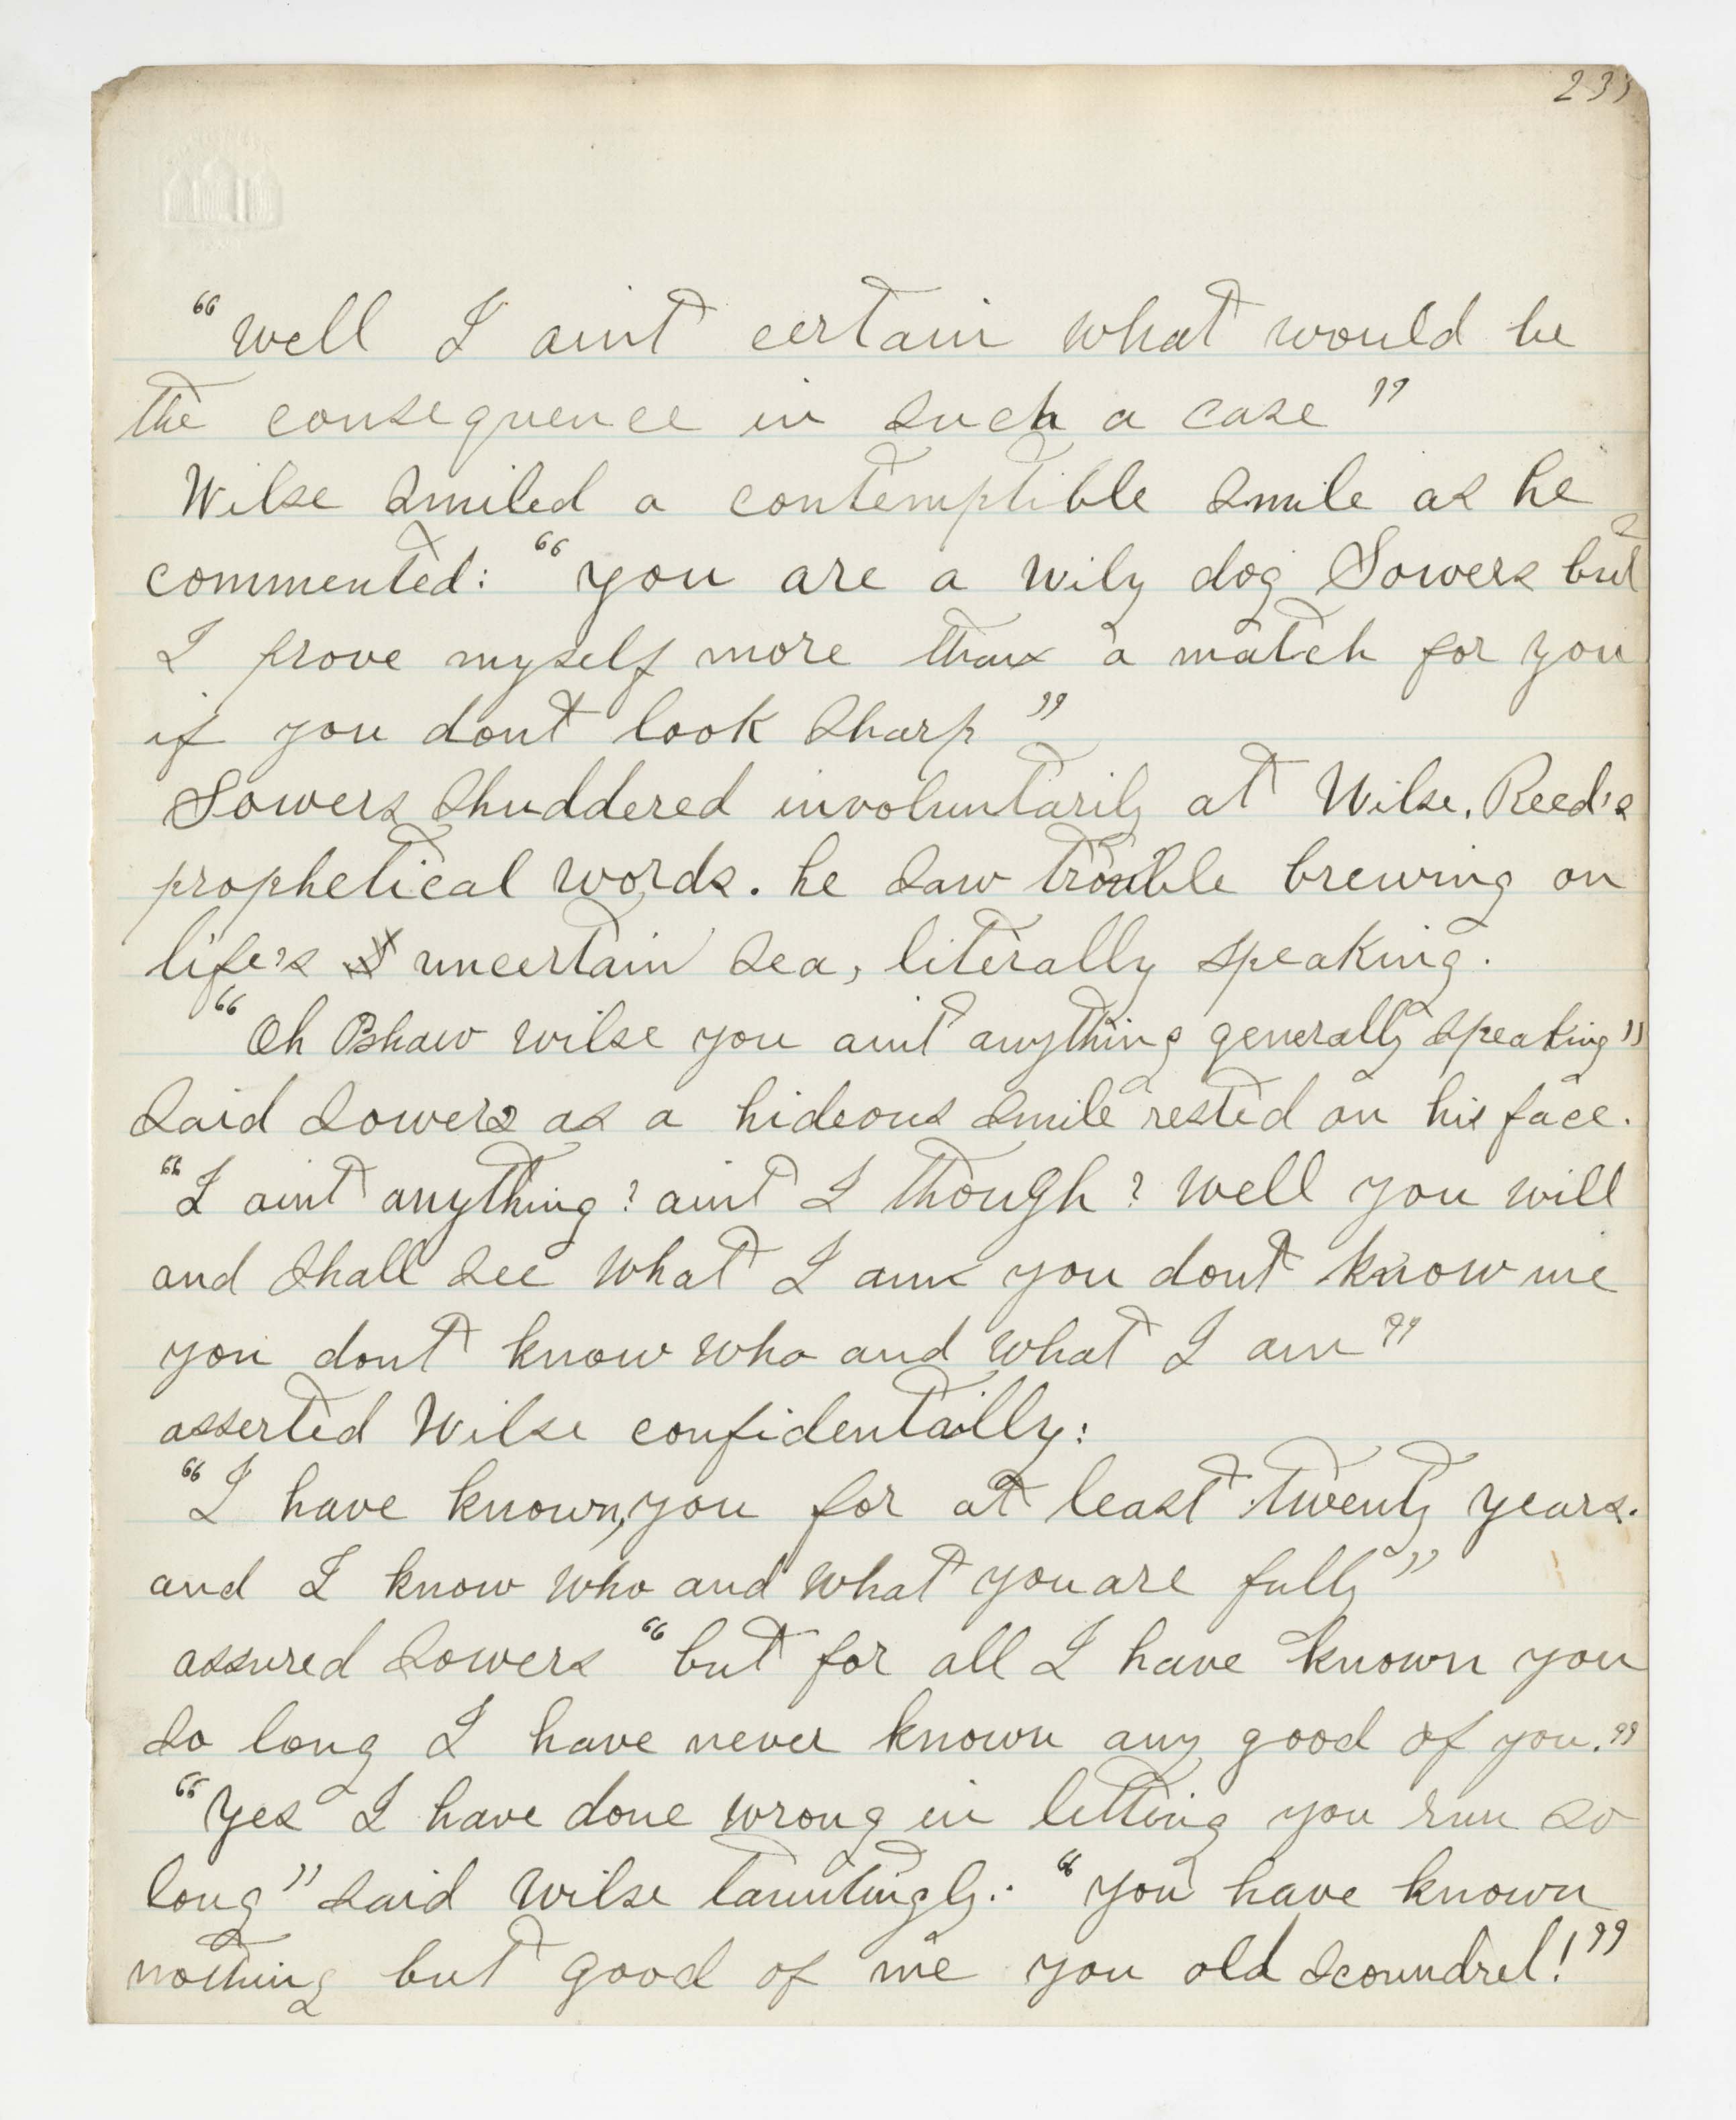 233
"Well I aint certain what would be
the consequence in such a case"
Wilse smiled a contemptible smile as he
commented: "you are a wily dog Sowers but
I prove myself more than a match for you
if you dont look sharp"
Sowers shuddered involuntarily at Wilse. Reed's
prophetical words. he saw trouble brewing on
life's uncertain sea, literally speaking.
"Oh Pshaw Wilse you aint anything generally speaking"
said Sowers as a hideous smile rested on his face.
"I aint anything? aint I though? well you will
and shall see what I am you dont know me
you dont know who and what I am"
asserted Wilse confidentailly:
"I have known, you for at least twenty years.
and I know who and what you are fully"
assured Sowers "but for all I have known you
so long I have never known any good of you."
"Yes I have done wrong in letting you run so
long" said Wilse tauntingly: "you have known
nothing but good of me you old scoundrel!"